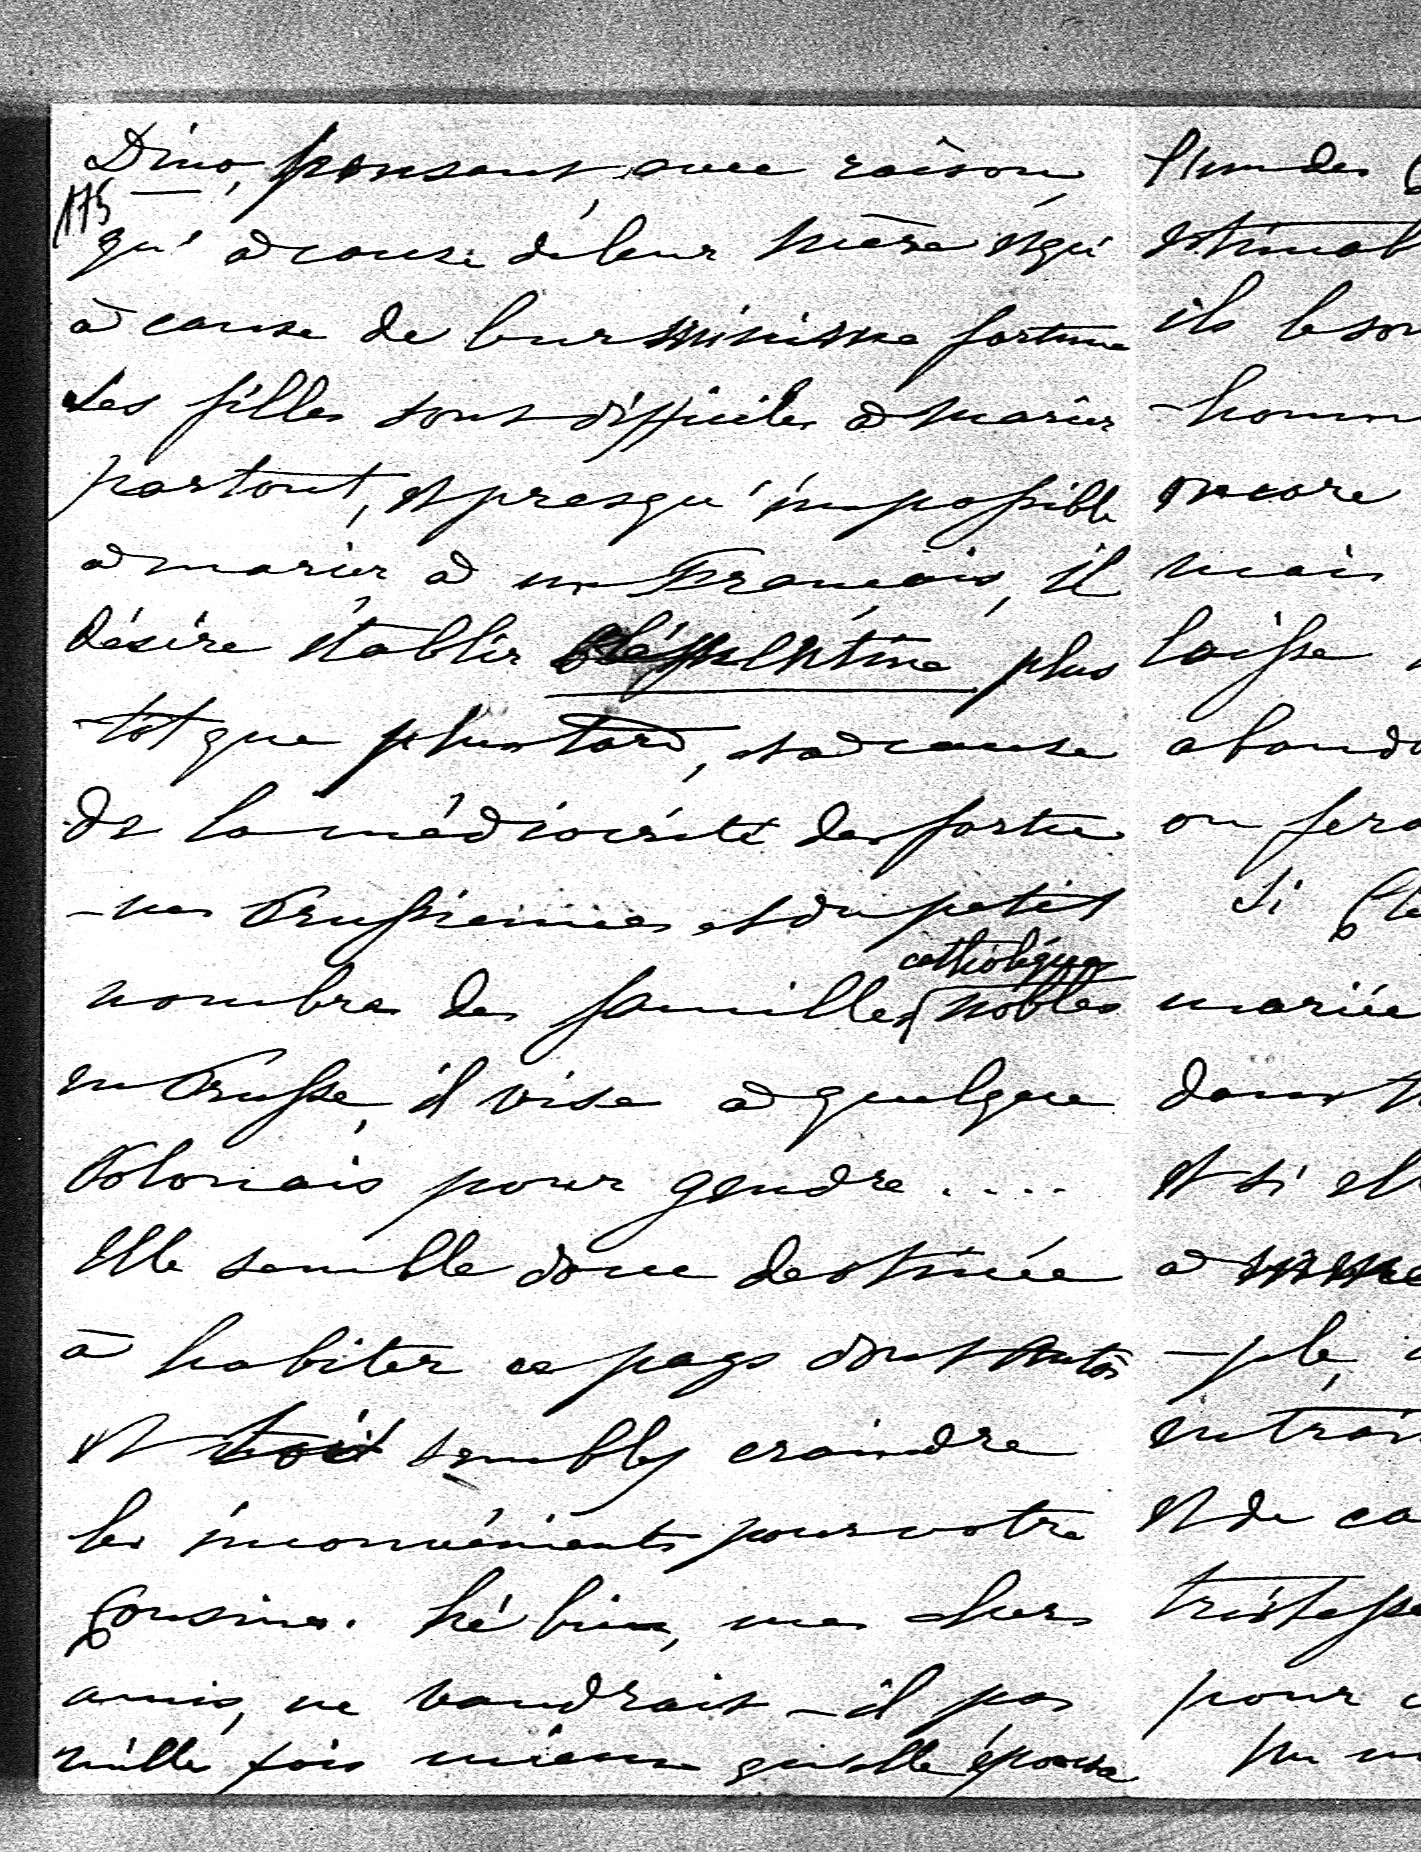 Dino, pensant avec raison
175
qu'à cause de leur mère et qu'
à cause de leur minime fortune
ses filles sont difficiles à marier
partout, et presqu'impossible
à marier à un Français, il
désire établir Clémentine plus
tôt que plus tard, et à cause
de la médiocrité des fortu
-nes Prussiennes et du petit
catholiques
nombre des familles nobles
en Prusse, il vise à quelque
Polonais pour gendre....
Elle semble donc destinée
à habiter ce pays dont
et toi semblez craindre
les inconvénients pour votre
Cousine. hé bien, mes chers
amis, ne vaudrait-il pas
mille fois mieux qu'elle épousa
l'un des
estimabl
ils le son
-homm
encore
mais
laisse
abando
on fera
Si Clé
mariée
dans
et si ell
à
-ple,
intrin
et de ca
tristesse
pour